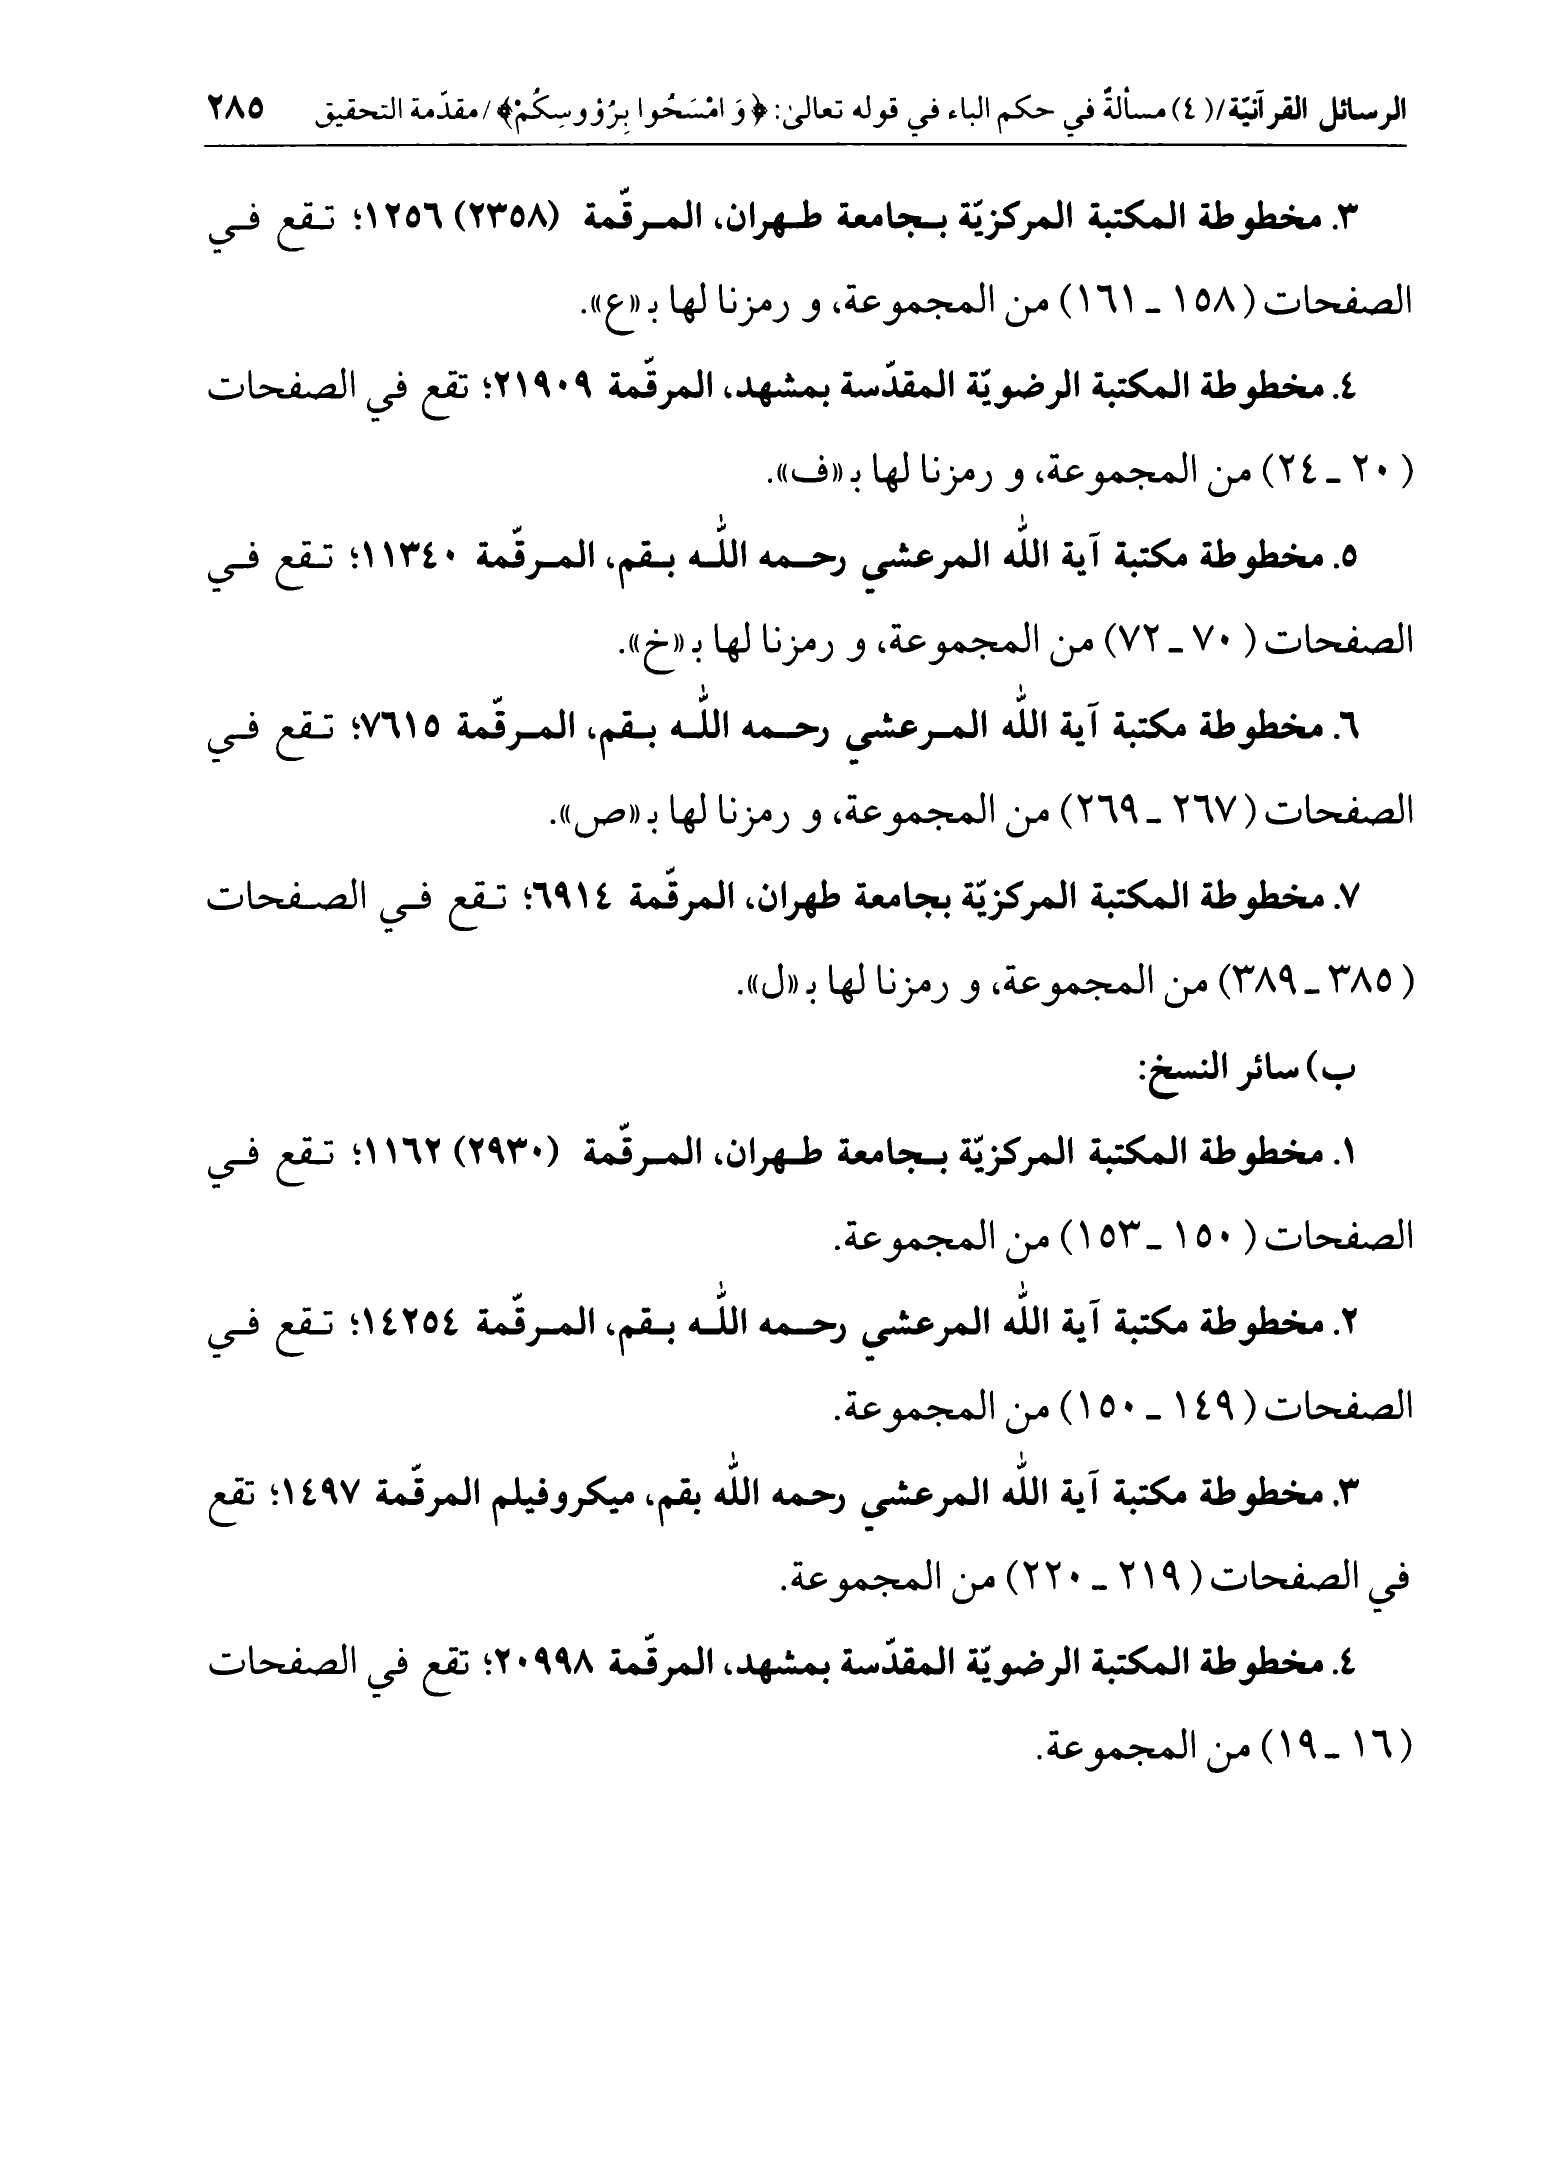 الرسائل القرآنيّة/(٤) مسألةٌ في حكم الباء في قوله تعالىٰ: ﴿وَ امْسَحُوا بِرُؤُوسِكُمْ﴾/مقدّمة التحقيق ٢٨٥
٣. مخطوطة المكتبة المركزيّة بـجامعة طـهران، المـرقّمة (٢٣٥٨) ١٢٥٦؛ تـقع فـي
الصفحات (١٥٨ ـ ١٦١) من المجموعة، و رمزنا لها بـ «ع».
٤. مخطوطة المكتبة الرضويّة المقدّسة بمشهد، المرقّمة ٢١٩٠٩؛ تقع في الصفحات
(٢٠ ـ ٢٤) من المجموعة، و رمزنا لها بـ «ف».
٥. مخطوطة مكتبة آية اللّٰه المرعشي رحـمه اللّٰـه بـقم، المـرقّمة ١١٣٤٠؛ تـقع فـي
الصفحات (٧٠ ـ ٧٢) من المجموعة، و رمزنا لها بـ «خ».
٦. مخطوطة مكتبة آية اللّٰه المـرعشي رحـمه اللّٰـه بـقم، المـرقّمة ٧٦١٥؛ تـقع فـي
الصفحات (٢٦٧ ـ ٢٦٩) من المجموعة، و رمزنا لها بـ «ص».
٧. مخطوطة المكتبة المركزيّة بجامعة طهران، المرقّمة ٦٩١٤؛ تـقع فـي الصـفحات
(٣٨٥ ـ ٣٨٩) من المجموعة، و رمزنا لها بـ «ل».
ب) سائر النسخ:
١. مخطوطة المكتبة المركزيّة بـجامعة طـهران، المـرقّمة (٢٩٣٠) ١١٦٢؛ تـقع فـي
الصفحات (١٥٠ ـ ١٥٣) من المجموعة.
٢. مخطوطة مكتبة آية اللّٰه المرعشي رحـمه اللّٰـه بـقم، المـرقّمة ١٤٢٥٤؛ تـقع فـي
الصفحات (١٤٩ ـ ١٥٠) من المجموعة.
٣. مخطوطة مكتبة آية اللّٰه المرعشي رحمه اللّٰه بقم، ميكروفيلم المرقّمة ١٤٩٧؛ تقع
في الصفحات (٢١٩ ـ ٢٢٠) من المجموعة.
٤. مخطوطة المكتبة الرضويّة المقدّسة بمشهد، المرقّمة ٢٠٩٩٨؛ تقع في الصفحات
(١٦ ـ ١٩) من المجموعة.